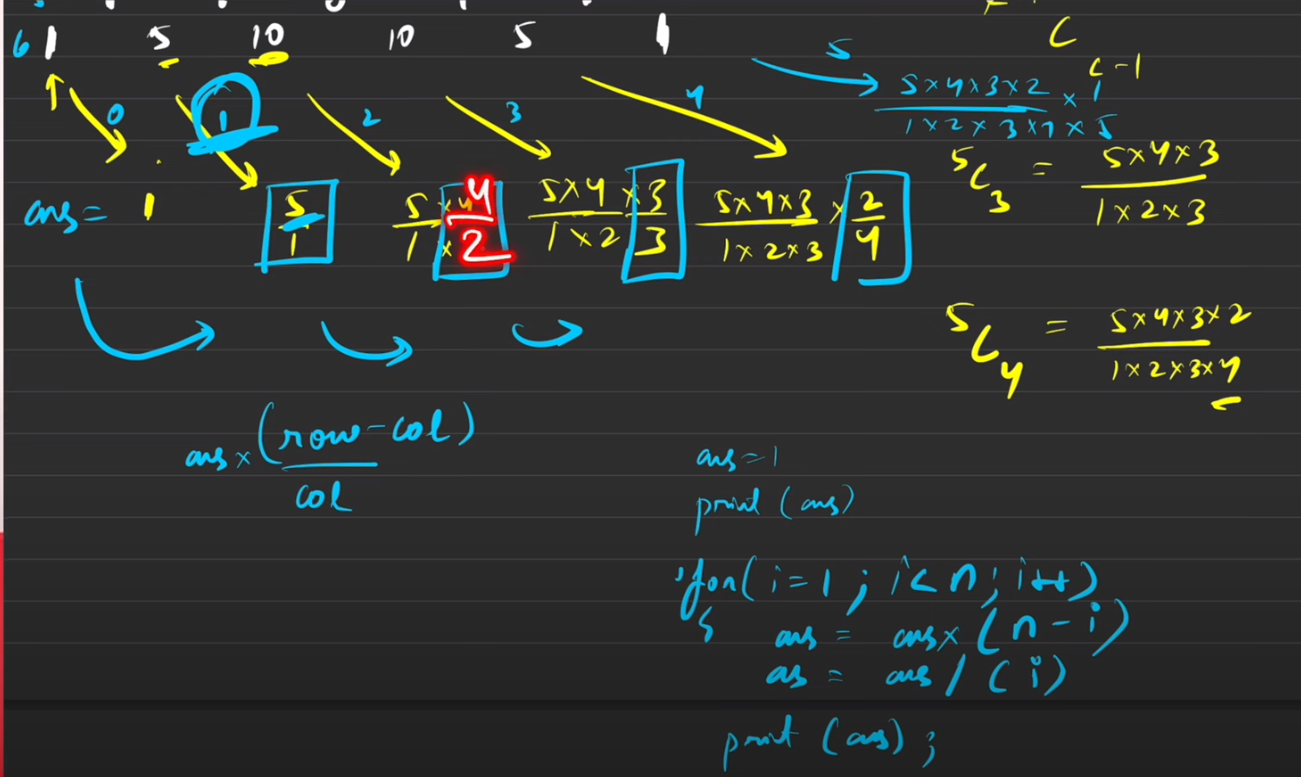 6 1 5 10 10 5 1
C
c-1
0 1 2 3 4 5
5×4×3×2 × 1
1×2×3×4×5
ans = 1
5/1
5×4 / 1×2
5×4×3 / 1×2×3
5×4×3×2 / 1×2×3×4
5C3 = 5×4×3 / 1×2×3
5C4 = 5×4×3×2 / 1×2×3×4
ans × (row-col) / col
ans = 1
print (ans)
for( i = 1 ; i < n ; i++)
{ ans = ans × (n - i)
as = ans / (i)
print (ans) ;